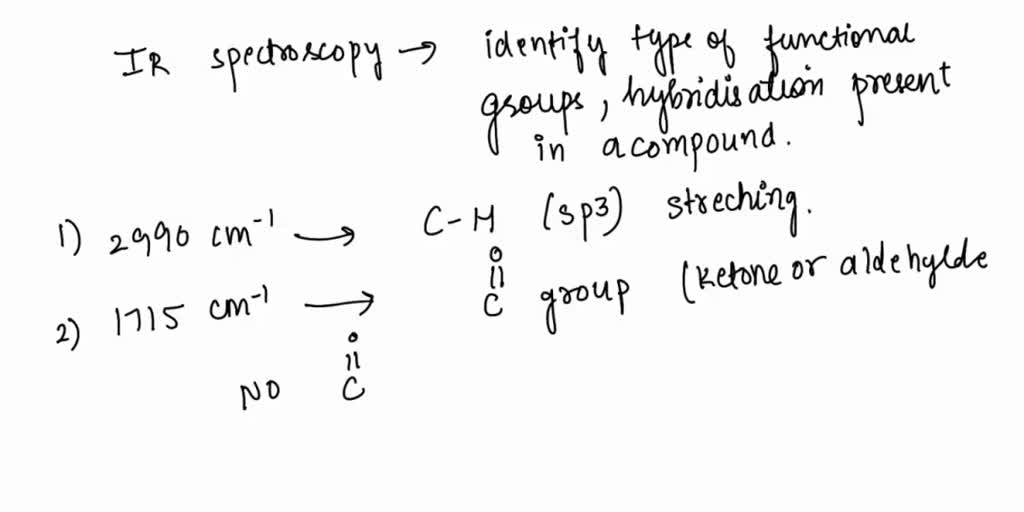 IR spectroscopy → identify type of functional
groups, hybridisation present
in a compound.
1) 2990 cm⁻¹ → C-H (sp3) streching.
O
||
2) 1715 cm⁻¹ → C group (ketone or aldehylde
O
||
NO C